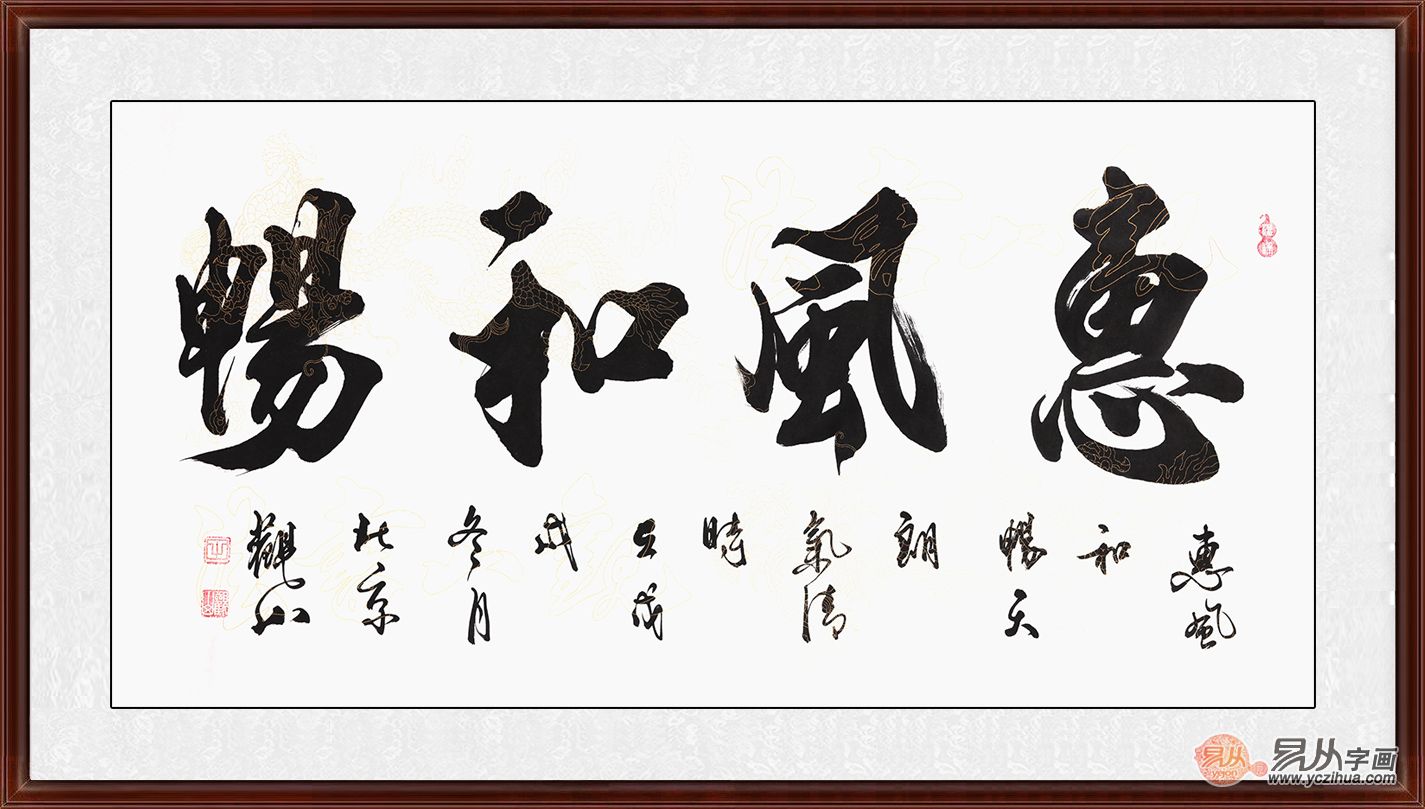 惠風和暢
惠風
和
暢天
朗
氣清
時
在戊
戌
冬月
北京
觀山
易从
易从字画
www.yczihua.com